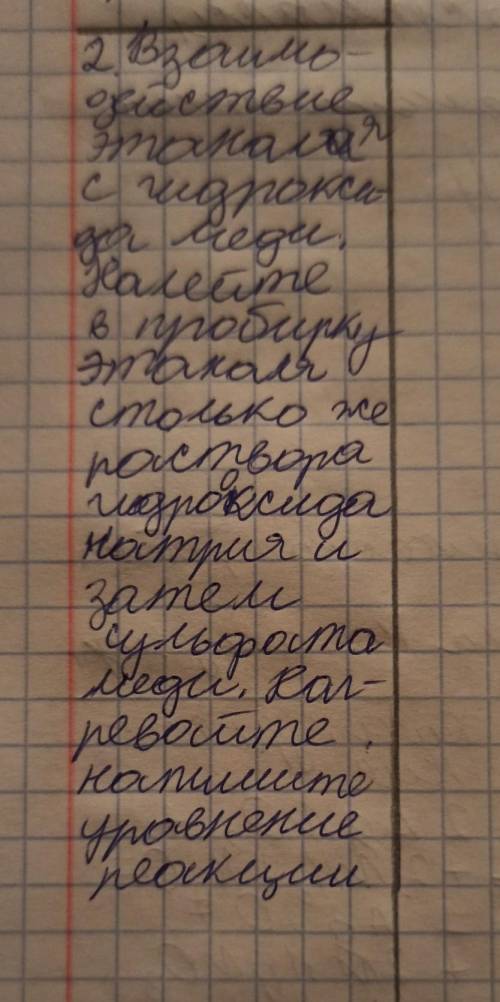 2. Взаимо-
действие
этаналая
с гидрокси-
да меди.
Налейте
в пробирку
этаналя
столько же
раствора
гидроксида
натрия и
затем
сульфата
меди. Наг-
ревайте.
напишите
уравнение
реакции